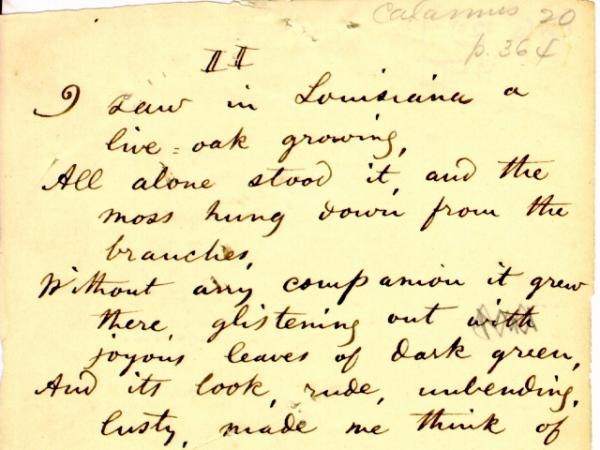 Calamus 20
p. 364
II
I saw in Louisiana a
live=oak growing,
All alone stood it, and the
moss hung down from the
branches,
Without any companion it grew
there, glistening out with
joyous leaves of dark green,
And its look, rude, unbending,
lusty, made me think of